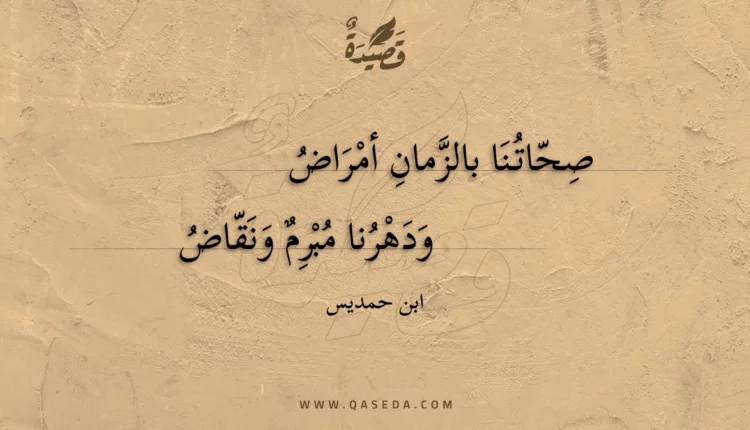 قَصِيْدَةٌ
صِحّاتُنَا بالزَّمانِ أمْرَاضُ
وَدَهْرُنا مُبْرِمٌ وَنَقّاضُ
ابن حمديس
WWW.QASEDA.COM